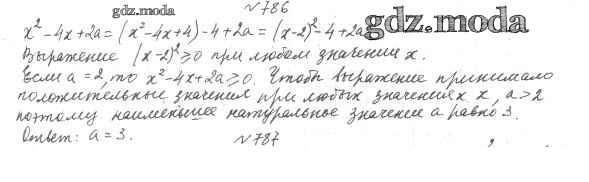 №786
gdz.moda
x² - 4x + 2a = (x² - 4x + 4) - 4 + 2a = (x - 2)² - 4 + 2a
gdz.moda
Выражение (x - 2)² ≥ 0 при любом значении x.
Если a = 2, то x² - 4x + 2a ≥ 0. Чтобы выражение принимало
положительные значения при любых значениях x, a > 2
поэтому наименьшее натуральное значение a равно 3.
Ответ: a = 3.
№787